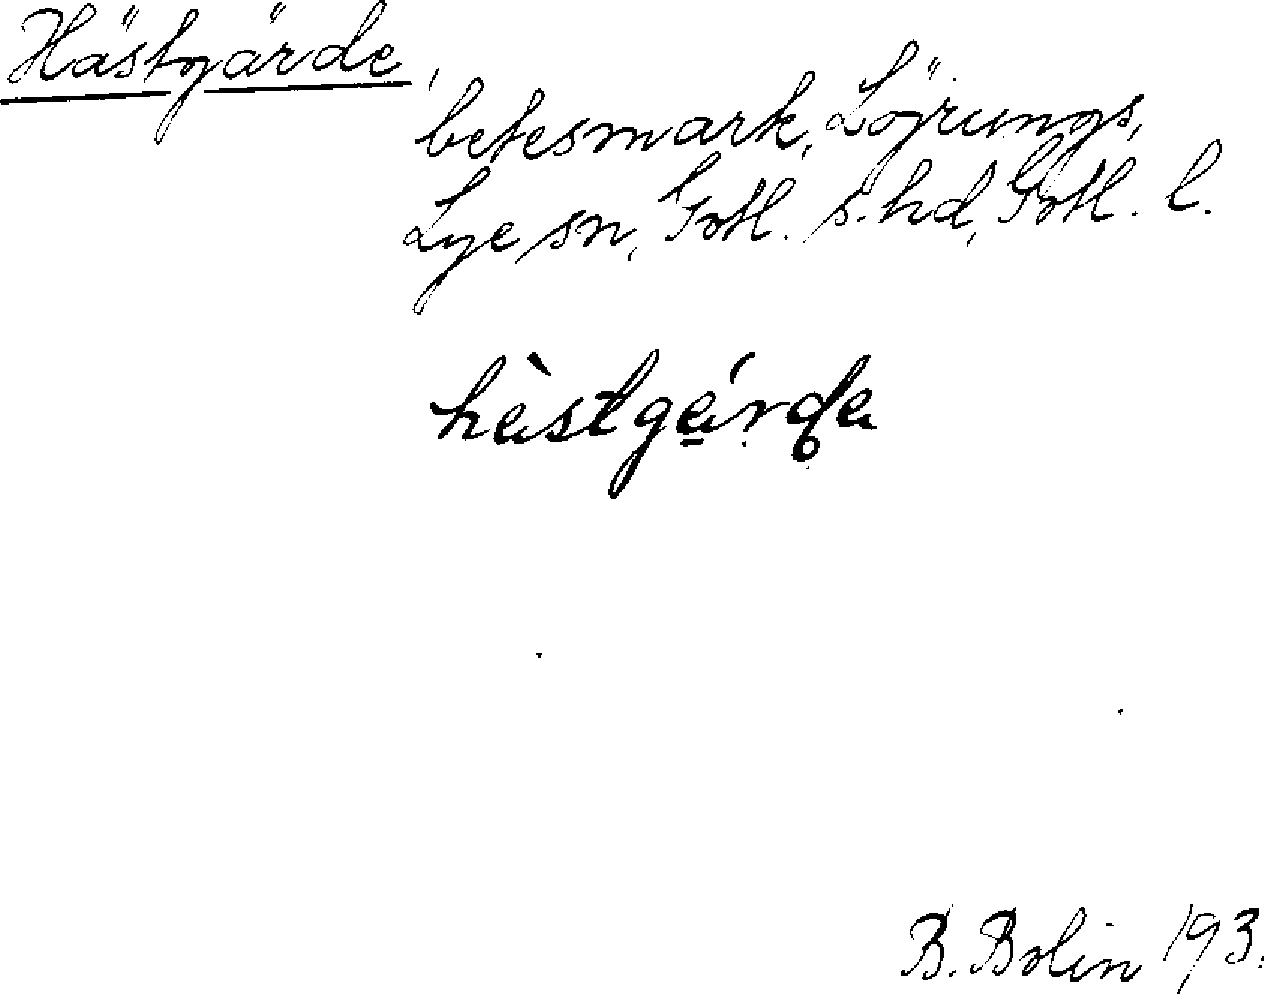 Hästgärde,
betesmark, Löjrungs,
Lye sn, Gotl. s. hd, Gotl. l.
hèstgárda
B. Bolin 193.